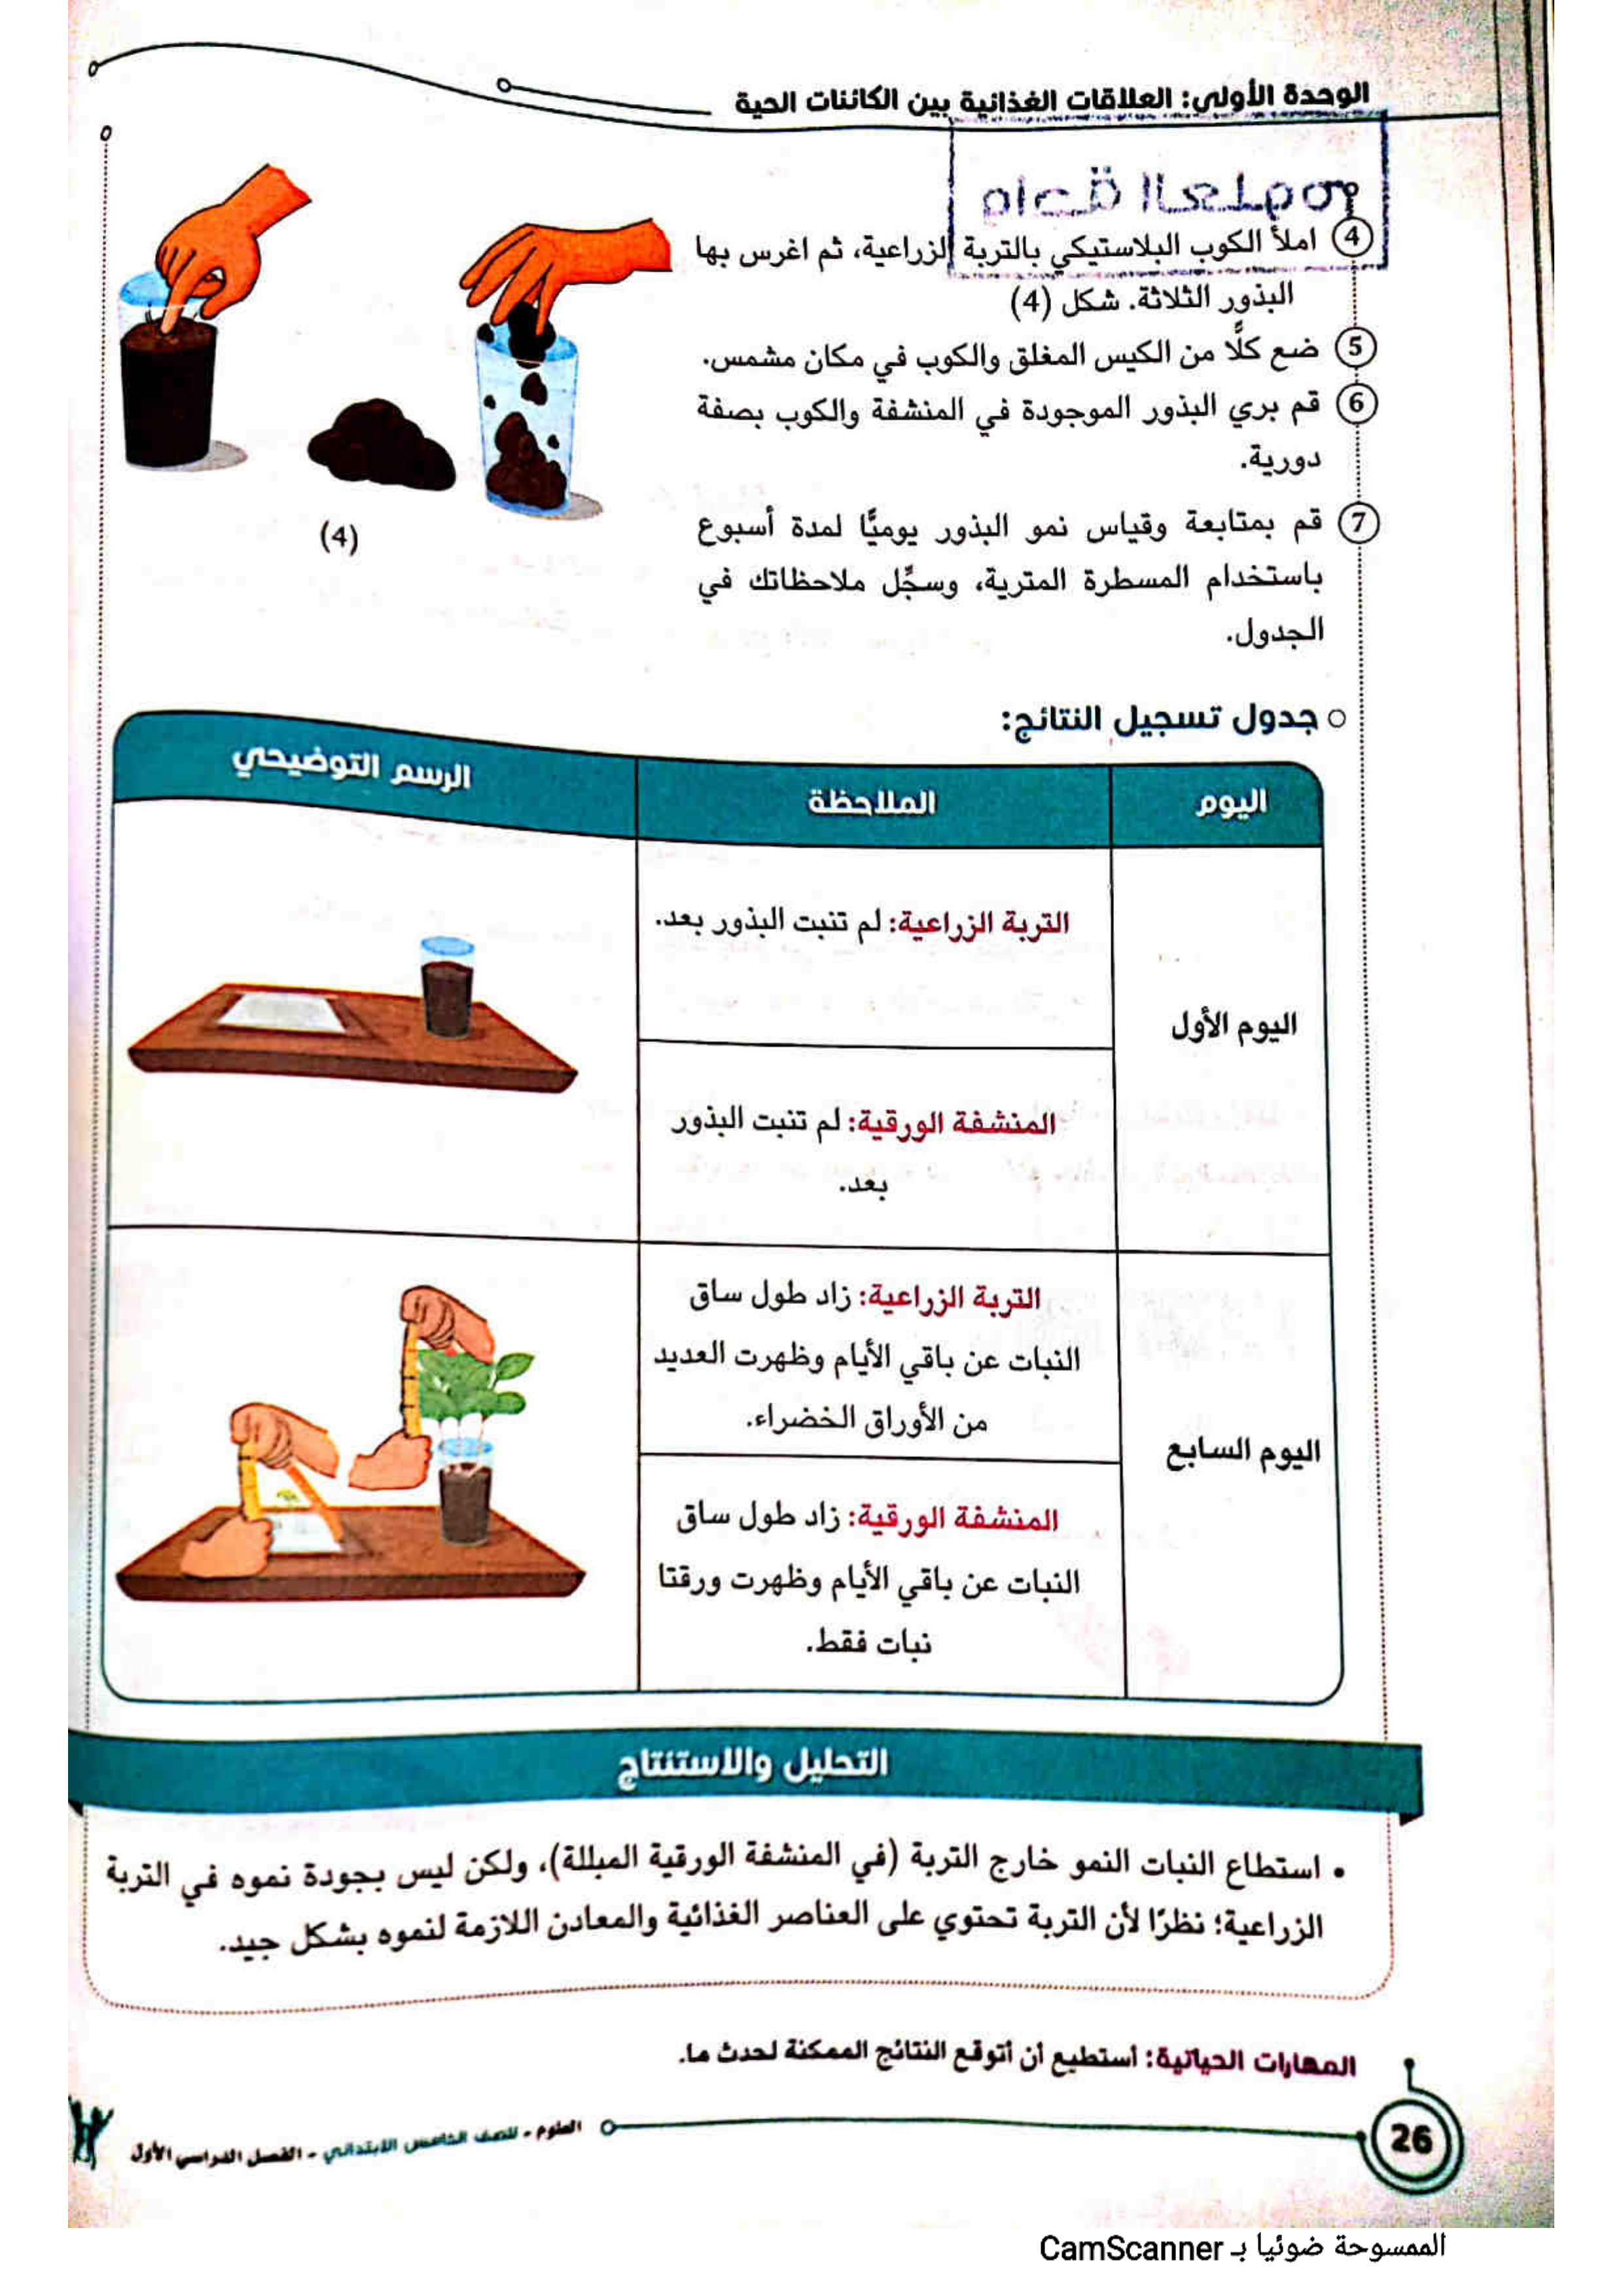 الوحدة الأولى: العلاقات الغذائية بين الكائنات الحية
مادة العلوم
4 املأ الكوب البلاستيكي بالتربة الزراعية، ثم اغرس بها
البذور الثلاثة. شكل (4)
5 ضع كلًّا من الكيس المغلق والكوب في مكان مشمس.
6 قم بري البذور الموجودة في المنشفة والكوب بصفة
دورية.
7 قم بمتابعة وقياس نمو البذور يوميًّا لمدة أسبوع
باستخدام المسطرة المترية، وسجِّل ملاحظاتك في
الجدول.
(4)
جدول تسجيل النتائج:
اليوم الملاحظة الرسم التوضيحي
اليوم الأول
التربة الزراعية: لم تنبت البذور بعد.
المنشفة الورقية: لم تنبت البذور
بعد.
اليوم السابع
التربة الزراعية: زاد طول ساق
النبات عن باقي الأيام وظهرت العديد
من الأوراق الخضراء.
المنشفة الورقية: زاد طول ساق
النبات عن باقي الأيام وظهرت ورقتا
نبات فقط.
التحليل والاستنتاج
• استطاع النبات النمو خارج التربة (في المنشفة الورقية المبللة)، ولكن ليس بجودة نموه في التربة
الزراعية؛ نظرًا لأن التربة تحتوي على العناصر الغذائية والمعادن اللازمة لنموه بشكل جيد.
المهارات الحياتية: أستطيع أن أتوقع النتائج الممكنة لحدث ما.
26 العلوم - للصف الخامس الابتدائي - الفصل الدراسي الأول
الممسوحة ضوئيا بـ CamScanner